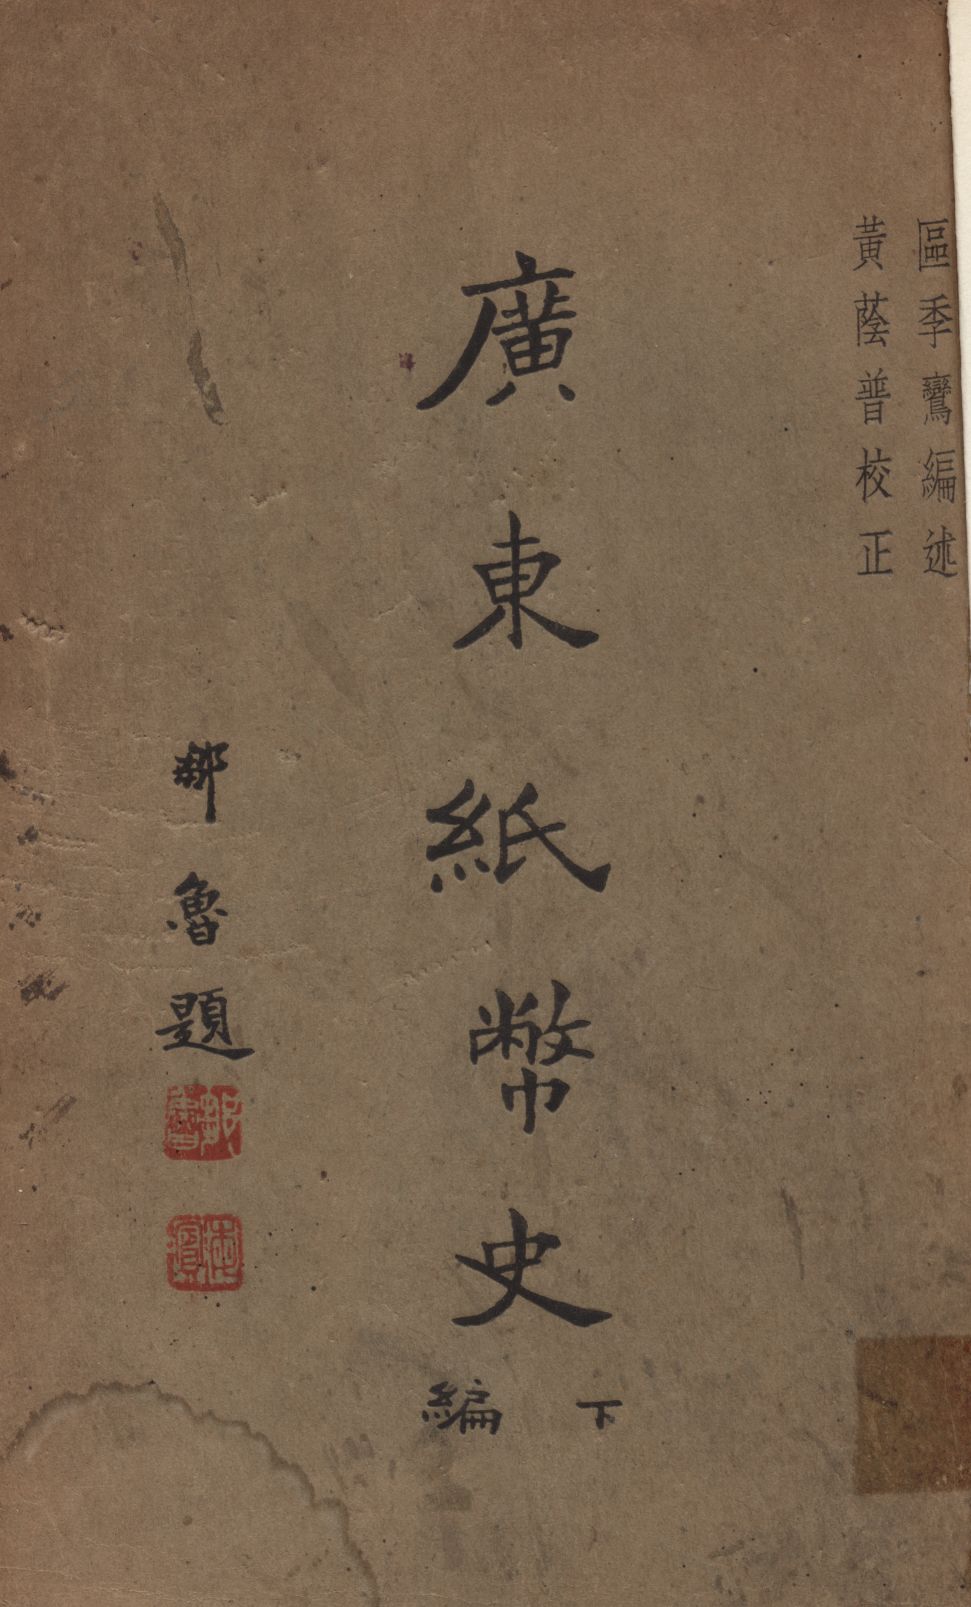 區季鸞編述
黃蔭普校正
廣東紙幣史
下編
鄒魯題
鄒魯
海濱